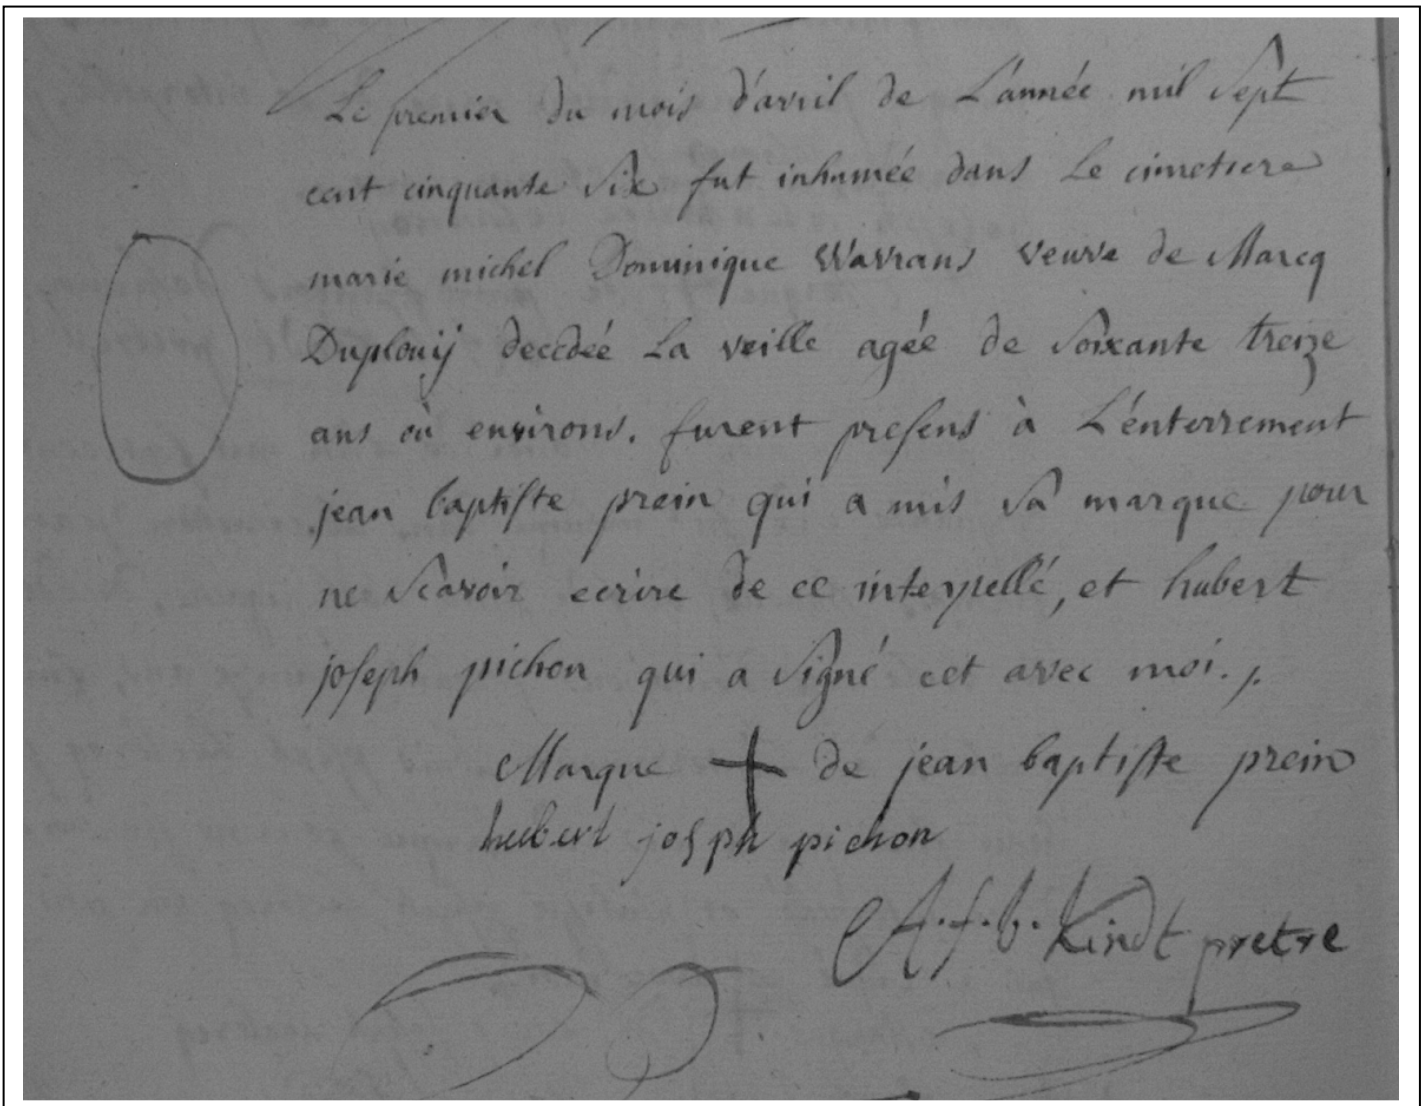 Le premier du mois d'avril de L'année mil sept
cent cinquante six fut inhumée dans Le cimetiere
marie michel Dominique Wavrans veuve de Marcq
Duplouÿ decedée La veille agée de soixante treize
ans où environs. furent presens à L'énterrement
jean baptiste prein qui a mis sa marque pour
ne scavoir ecrire de ce interpellé, et hubert
joseph pichon qui a signé cet avec moi./.
Marque + de jean baptiste prein
hubert joseph pichon
A.f.b. Kindt pretre